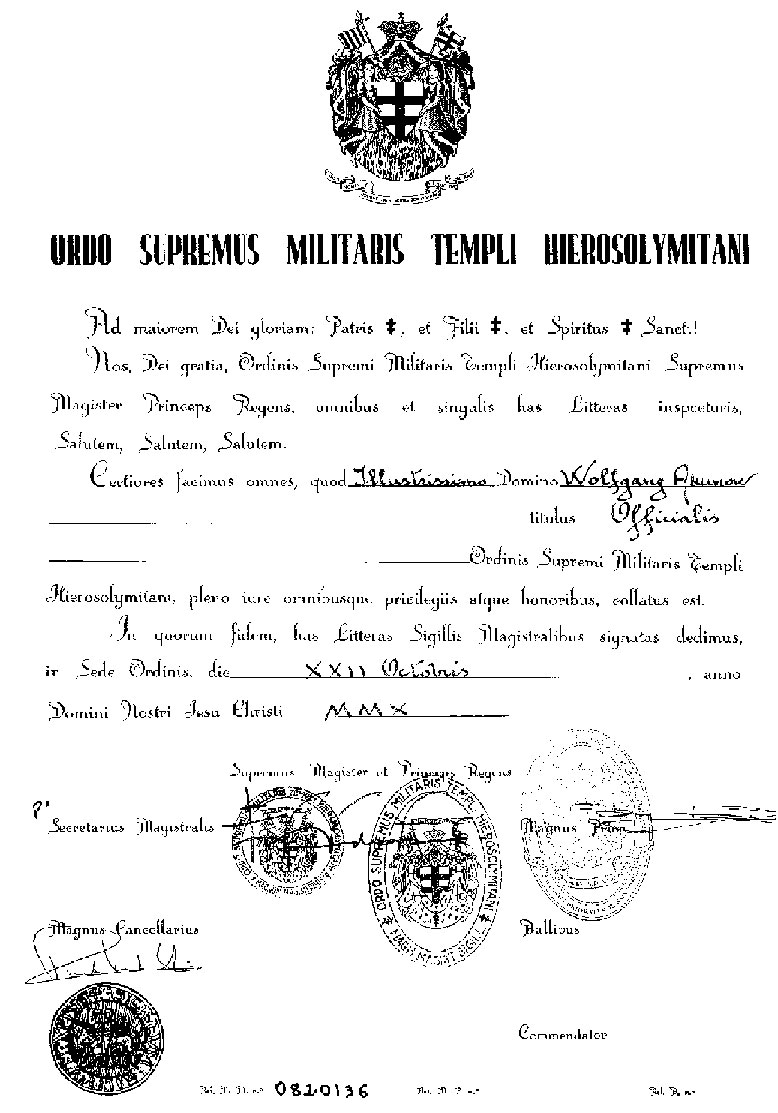 ORDO SUPREMUS MILITARIS TEMPLI HIEROSOLYMITANI
Ad maiorem Dei gloriam: Patris ‡, et Filii ‡, et Spiritus ‡ Sanct.!
Nos, Dei gratia, Ordinis Supremi Militaris Templi Hierosolymitani Supremus
Magister Princeps Regens, omnibus et singulis has Litteras inspecturis,
Salutem, Salutem, Salutem.
Certiores facimus omnes, quod Illustrissimo Domino Wolfgang
titulus Officialis
Ordinis Supremi Militaris Templi
Hierosolymitani, pleno iure omnibusque privilegiis atque honoribus, collatus est.
In quorum fidem, has Litteras Sigillis Magistralibus signatas dedimus,
in Sede Ordinis, die XXII Octobris , anno
Domini Nostri Jesu Christi MMX
Supremus Magister et Princeps Regens
Secretarius Magistralis
Magnus Prior
ORDO SUPREMUS MILITARIS TEMPL HIEROSOLYMITANI
Magnus Cancellarius
Ballivus
Commendator
0820136